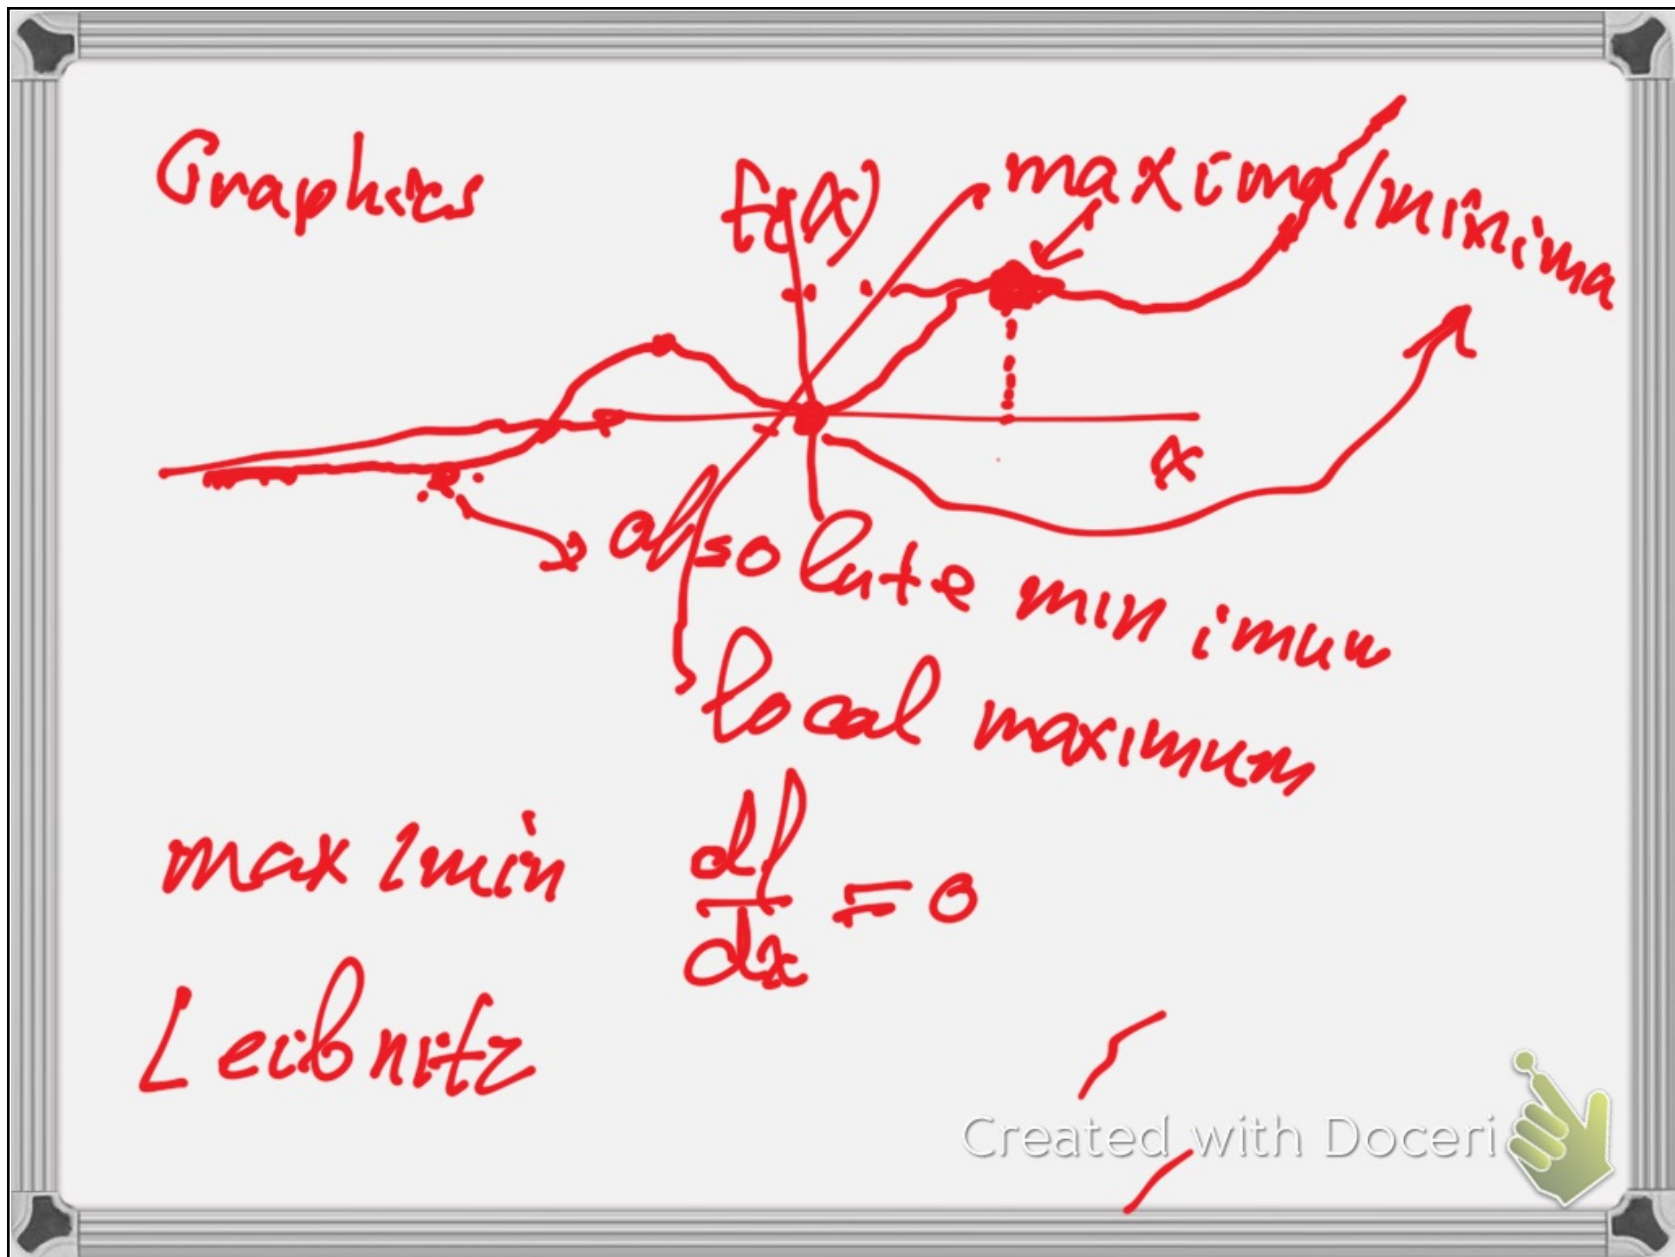 Graphics
f(x)
maxima/minima
x
absolute minimum
local maximum
max/min df/dx = 0
Leibnitz
Created with Doceri